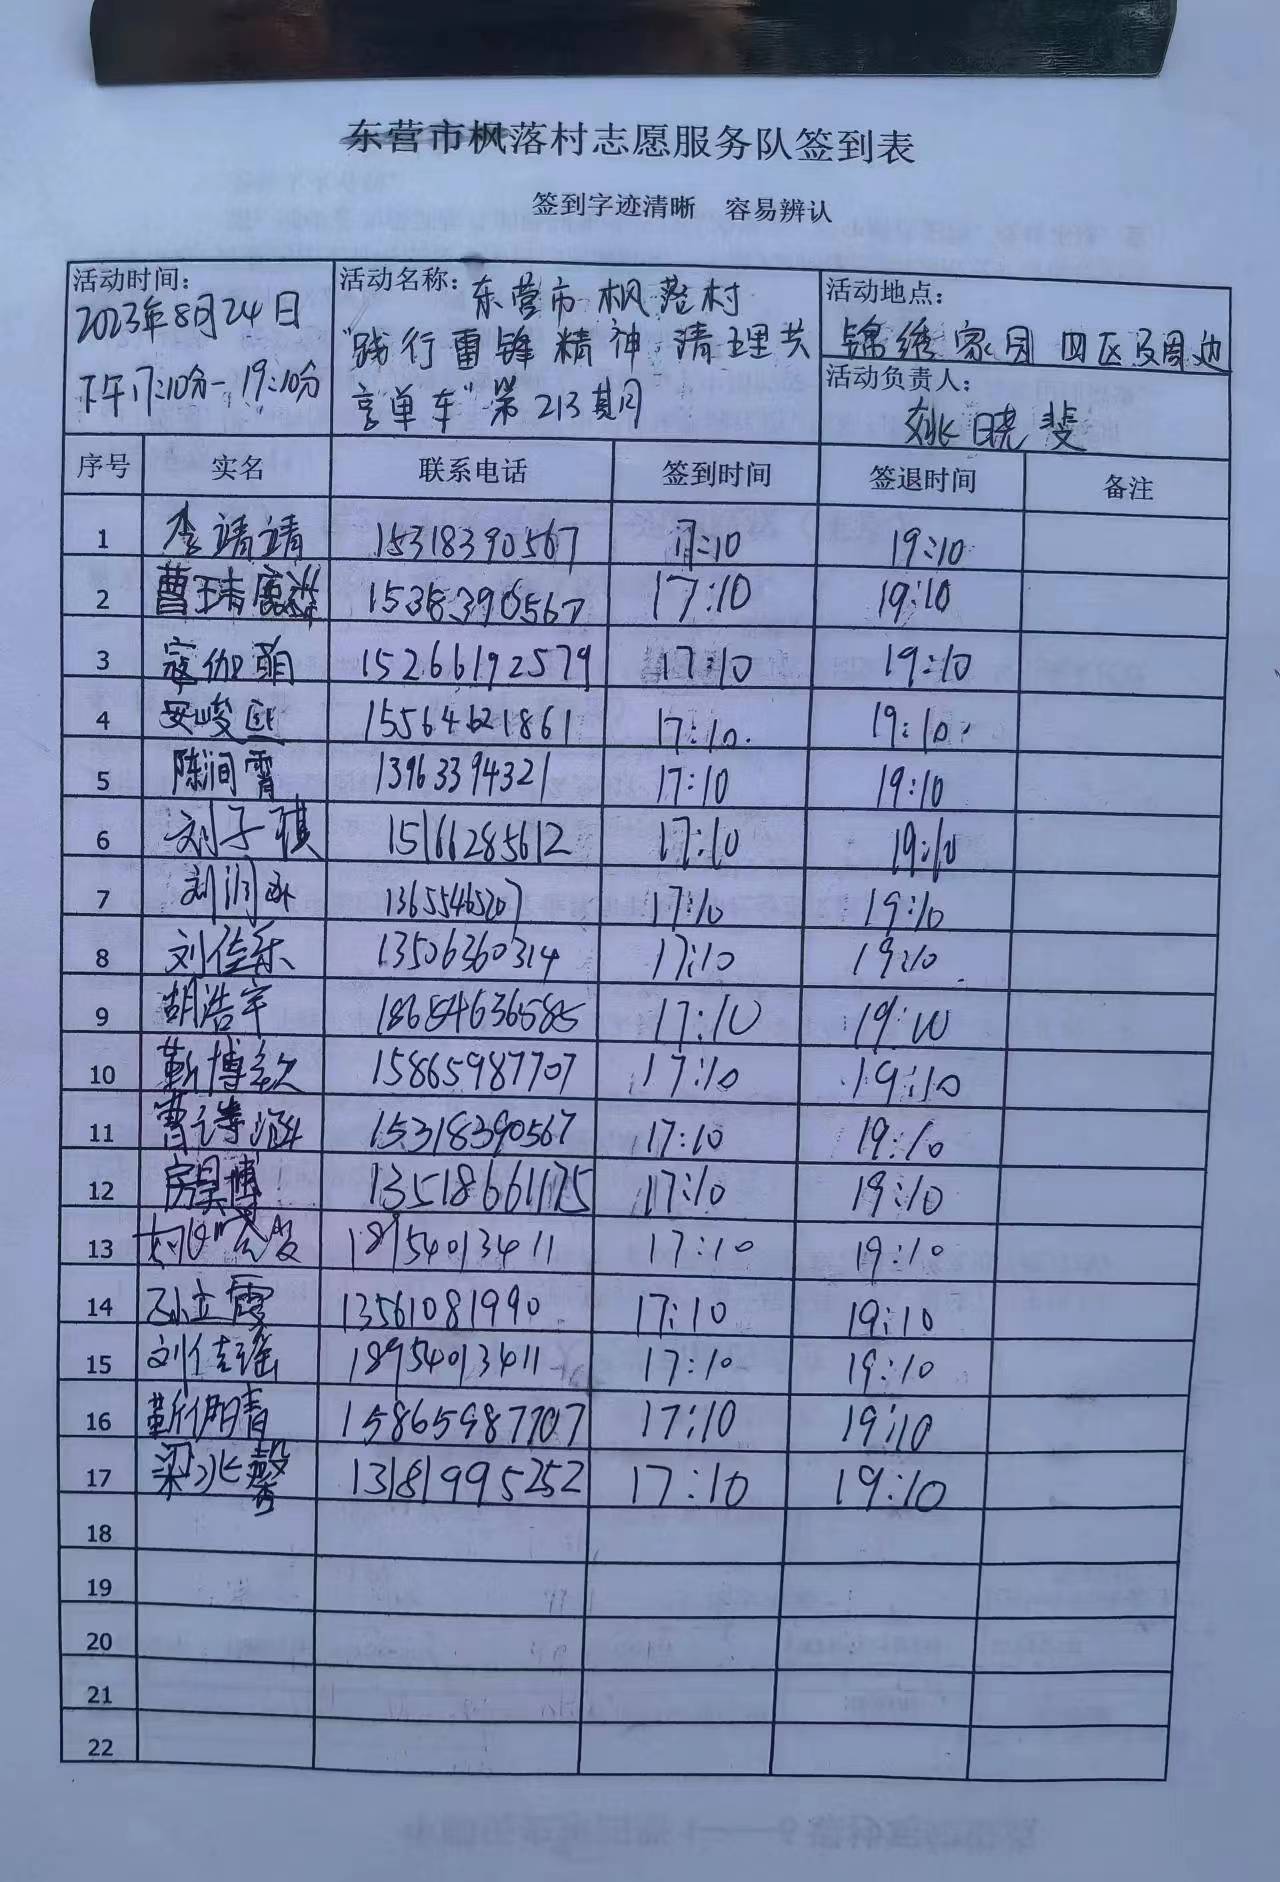 东营市枫落村志愿服务队签到表
签到字迹清晰 容易辨认
活动时间：
2023年8月24日
下午17:10分-19:10分
活动名称：东营市枫落村
“践行雷锋精神 清理共
享单车”第213期
活动地点：
锦绣家园四区及周边
活动负责人：
姚晓斐
序号 实名 联系电话 签到时间 签退时间 备注
1 李靖靖 15318390567 17:10 19:10
2 17:10 19:10
3 寇伽萌 15266192579 17:10 19:10
4 安峻 15564621861 17:10. 19:10.
5 陈润霄 13963394321 17:10 19:10
6 刘子祺 15166285612 17:10 19:10
7 刘润 13655465207 17:10 19:10
8 刘佳乐 13506360314 17:10 19:10
9 胡浩宇 17:10 19:10
10 靳博 15865987707 17:10 19:10
11 曹诗涵 15318390567 17:10 19:10
12 房昊博 17:10 19:10
13 18954013411 17:10 19:10
14 孙立霞 13561081990 17:10 19:10
15 刘佳瑶 18954013411 17:10 19:10
16 靳 15865987707 17:10 19:10
17 梁冰馨 13181995252 17:10 19:10
18
19
20
21
22